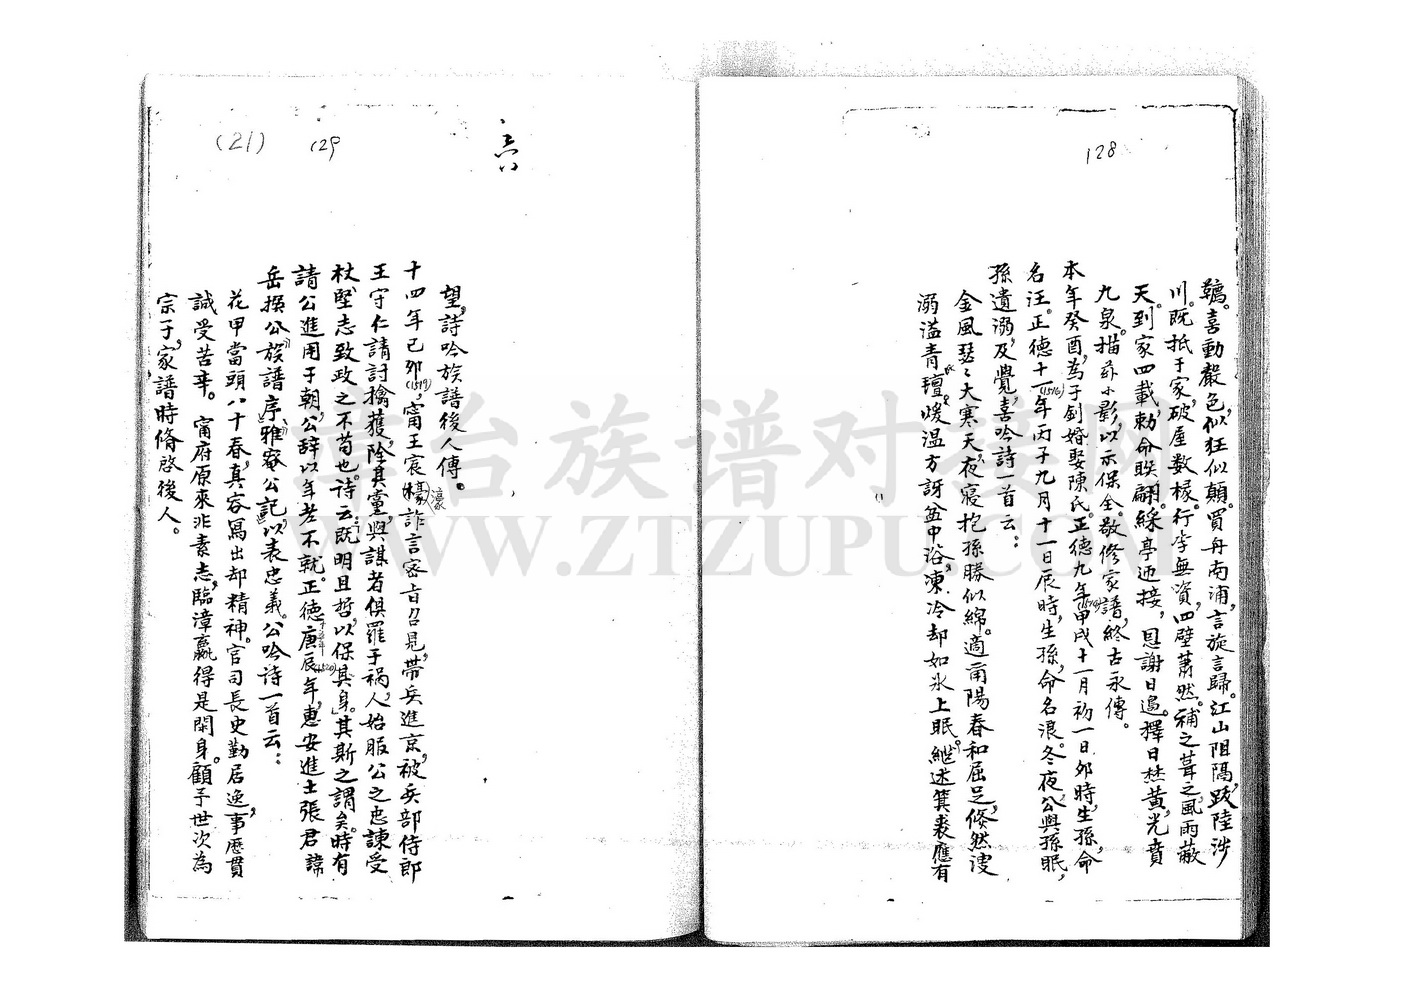 128
鞲。喜動嚴色,似狂似顛。買舟南浦,言旋言歸。江山阻隔,跋陸涉
川。既抵于家,破屋数椽。行李無資,四壁蕭然。補之葺之,風雨蔽
天。到家四載,勅命聯翩。綵亭迎接,恩謝日邊。擇日焚黃,光賁
九泉。描茲小影,以示保全。敬修家譜,終古永傳。
本年癸酉,為子釗婚娶陳氏。正德九年(1514)甲戌十一月初一日夘時,生孫,命
名汪。正德十一年(1516)丙子九月十一日辰時,生孫,命名浪。冬夜,公與孫眠,
孫遺溺,及覺,喜吟詩一首云:
金風瑟〻大寒天,夜寢抱孫勝似綿。適甭陽春和屈足,倐然溲
溺溢青氈。煖温方訝盆中浴,凍冷却如氷上眠。継述箕裘應有
(21)
129
望,詩吟族譜後人傳。
十四年己夘(1519),甯王宸檺(濠)詐言密旨召見,带兵進京,被兵部侍郎
王守仁請討擒獲,除其黨,與謀者俱罹于禍,人始服公之忠諫受
杖,堅志致政之不苟也。诗云:「既明且哲,以保其身。」其斯之謂矣。時有
請公進用于朝,公辞以年老不就。正德庚辰十五年(1520)年,惠安進士張君諱
岳撰公「族譜序」、「雅寮公記」,以表忠義。公吟诗一首云:
花甲當頭八十春,真容寫出却精神。官司長史勤居逸,事歷貫
誠受苦辛。甯府原來非素志,臨漳贏得是閑身。顧予世次為
宗子,家譜時脩啓後人。
章台族谱对接网
WWW.ZTZUPU.COM